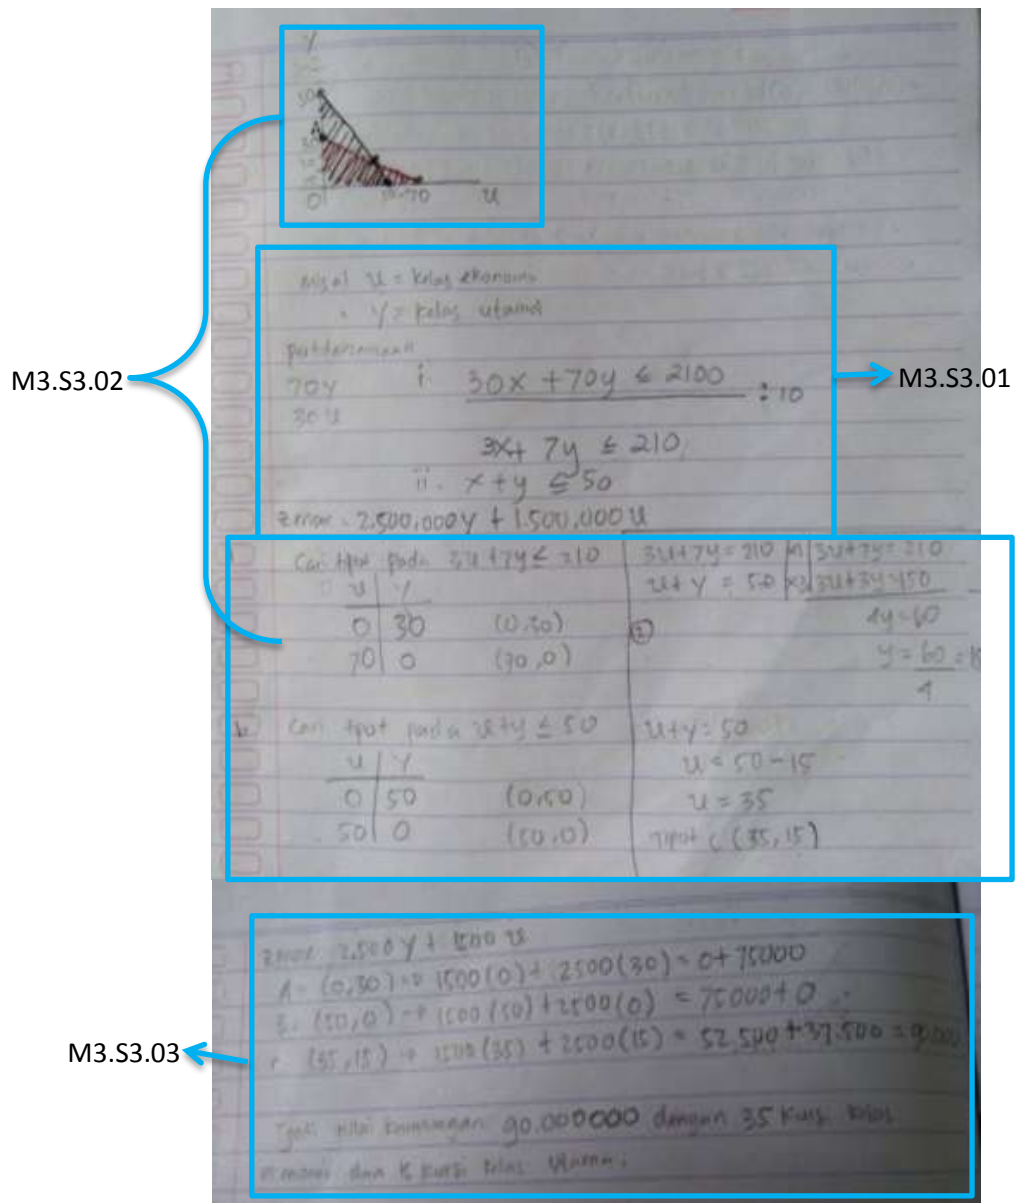 Y
50
30
0
70
u
M3.S3.02
M3.S3.01
M3.S3.03
misal u = kelas ekonomi
y = kelas utama
70y
30u
i 30x + 70y ≤ 2100 : 10
3x + 7y ≤ 210
ii. x + y ≤ 50
z max = 2.500.000y + 1.500.000u
Cari tpot pada 3u + 7y ≤ 210
u | y
0 | 30 (0,30)
70 | 0 (70,0)
Cari tpot pada u + y ≤ 50
u | y
0 | 50 (0,50)
50 | 0 (50,0)
3u + 7y = 210 | x1 | 3u + 7y = 210
u + y = 50 | x3 | 3u + 3y = 150 -
②
4y = 60
y = 60 = 15
4
u + y = 50
u = 50 - 15
u = 35
Tipot C (35,15)
z max 2.500y + 1500u
A = (0,30) → 1500(0) + 2500(30) = 0 + 75000
B. (50,0) → 1500(50) + 2500(0) = 75000 + 0
(35,15) → 1500(35) + 2500(15) = 52.500 + 37.500 =
nilai keuntungan 90.000000 dengan 35 kursi kelas
ekonomi dan 15 kursi kelas utama.